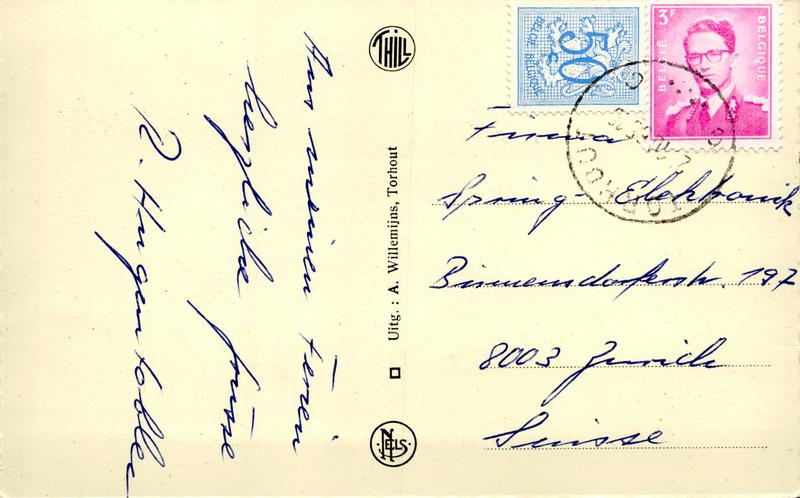 Aus meinen Ferien
herzliche Grüsse
R. Hugentobler
THILL
Uitg.: A. Williemijns, Torhout
NELS
50c
BELGIE BELGIQUE
3F
BELGIË
BELGIQUE
TORHOUT
Firma
Spring-Elektronik
Birmensdorferstr. 197
8003 Zürich
Suisse